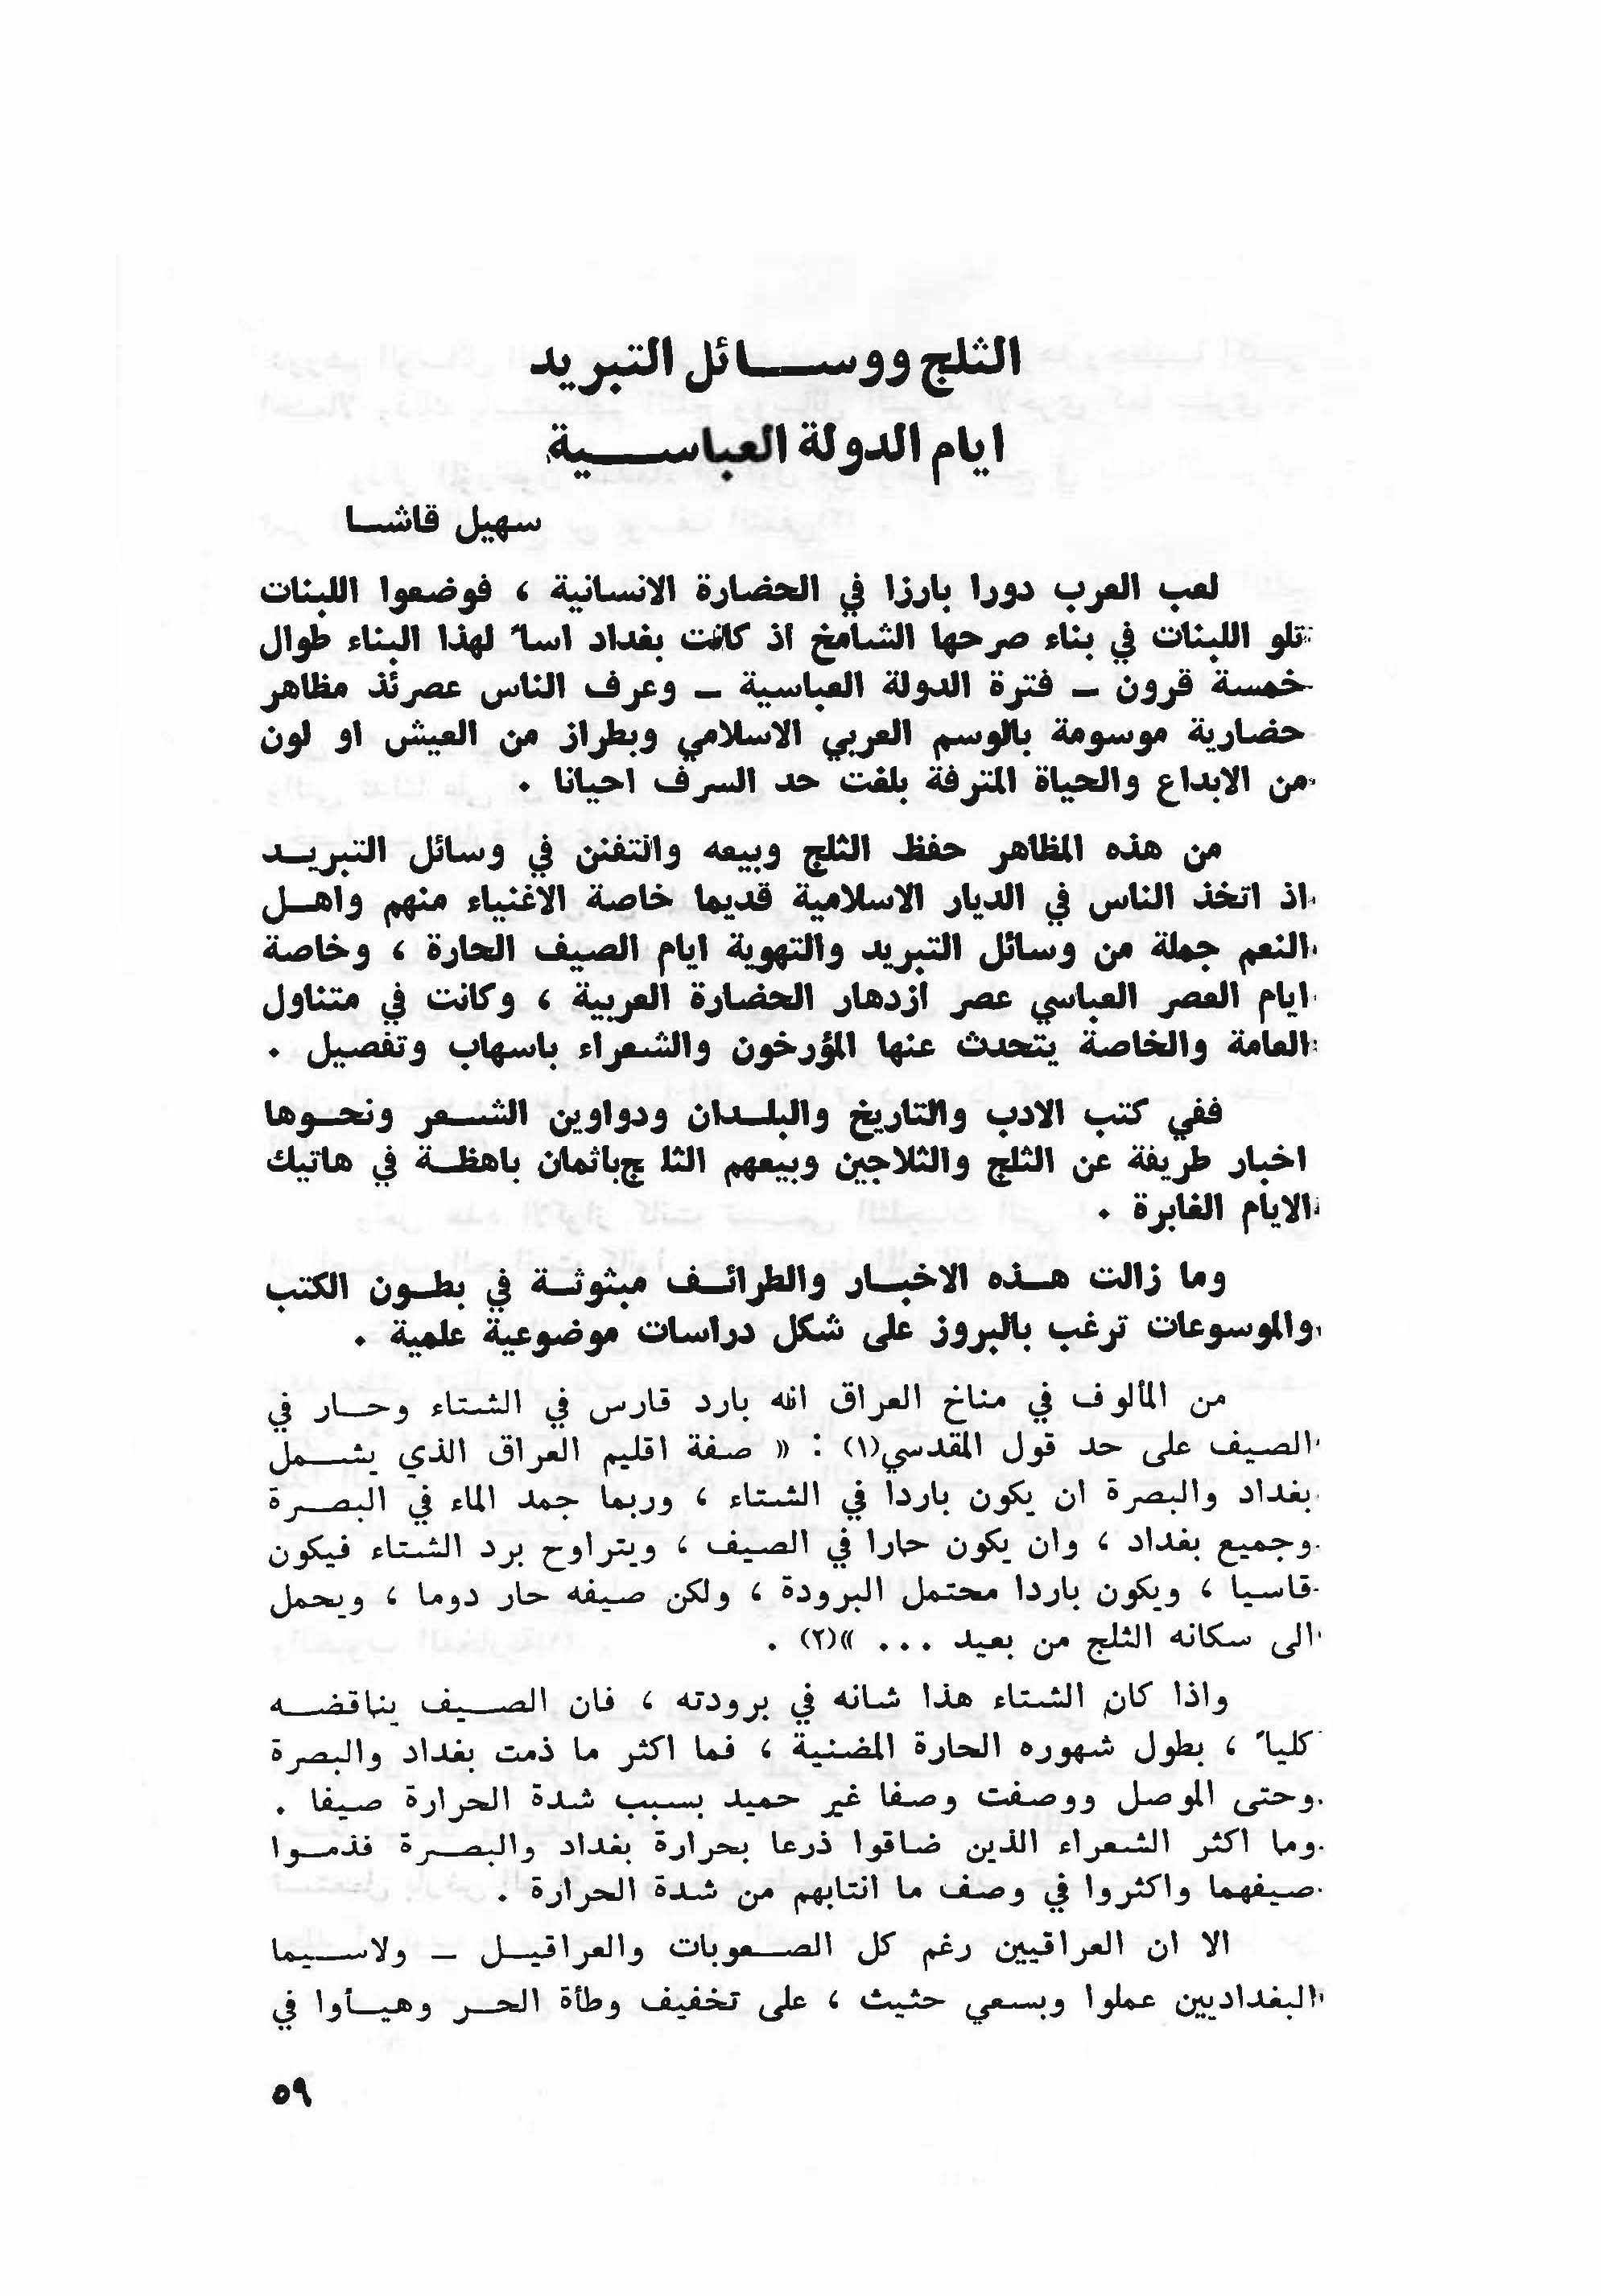 الثلج ووسائل التبريد
ايام الدولة العباسية
سهيل قاشا
لعب العرب دورا بارزا في الحضارة الانسانية ، فوضعوا اللبنات
تلو اللبنات في بناء صرحها الشامخ اذ كانت بغداد اساً لهذا البناء طوال
خمسة قرون – فترة الدولة العباسية – وعرف الناس عصرئذ مظاهر
حضارية موسومة بالوسم العربي الاسلامي وبطراز من العيش او لون
من الابداع والحياة المترفة بلغت حد السرف احيانا .
من هذه المظاهر حفظ الثلج وبيعه والتفنن في وسائل التبريد
اذ اتخذ الناس في الديار الاسلامية قديما خاصة الاغنياء منهم واهل
النعم جملة من وسائل التبريد والتهوية ايام الصيف الحارة ، وخاصة
ايام العصر العباسي عصر ازدهار الحضارة العربية ، وكانت في متناول
العامة والخاصة يتحدث عنها المؤرخون والشعراء باسهاب وتفصيل .
ففي كتب الادب والتاريخ والبلدان ودواوين الشعر ونحوها
اخبار طريفة عن الثلج والثلاجين وبيعهم الثلج باثمان باهظة في هاتيك
الايام الغابرة .
وما زالت هذه الاخبار والطرائف مبثوثة في بطون الكتب
والموسوعات ترغب بالبروز على شكل دراسات موضوعية علمية .
من المألوف في مناخ العراق انه بارد قارس في الشتاء وحار في
الصيف على حد قول المقدسي(١) : « صفة اقليم العراق الذي يشمل
بغداد والبصرة ان يكون باردا في الشتاء ، وربما جمد الماء في البصرة
وجميع بغداد ، وان يكون حارا في الصيف ، ويتراوح برد الشتاء فيكون
قاسيا ، ويكون باردا محتمل البرودة ، ولكن صيفه حار دوما ، ويحمل
الى سكانه الثلج من بعيد ... »(٢) .
واذا كان الشتاء هذا شانه في برودته ، فان الصيف يناقضه
كلياً ، بطول شهوره الحارة المضنية ، فما اكثر ما ذمت بغداد والبصرة
وحتى الموصل ووصفت وصفا غير حميد بسبب شدة الحرارة صيفا .
وما اكثر الشعراء الذين ضاقوا ذرعا بحرارة بغداد والبصرة فذموا
صيفهما واكثروا في وصف ما انتابهم من شدة الحرارة .
الا ان العراقيين رغم كل الصعوبات والعراقيل – ولاسيما
البغداديين عملوا وبسعي حثيث ، على تخفيف وطأة الحر وهيأوا في
٥٩